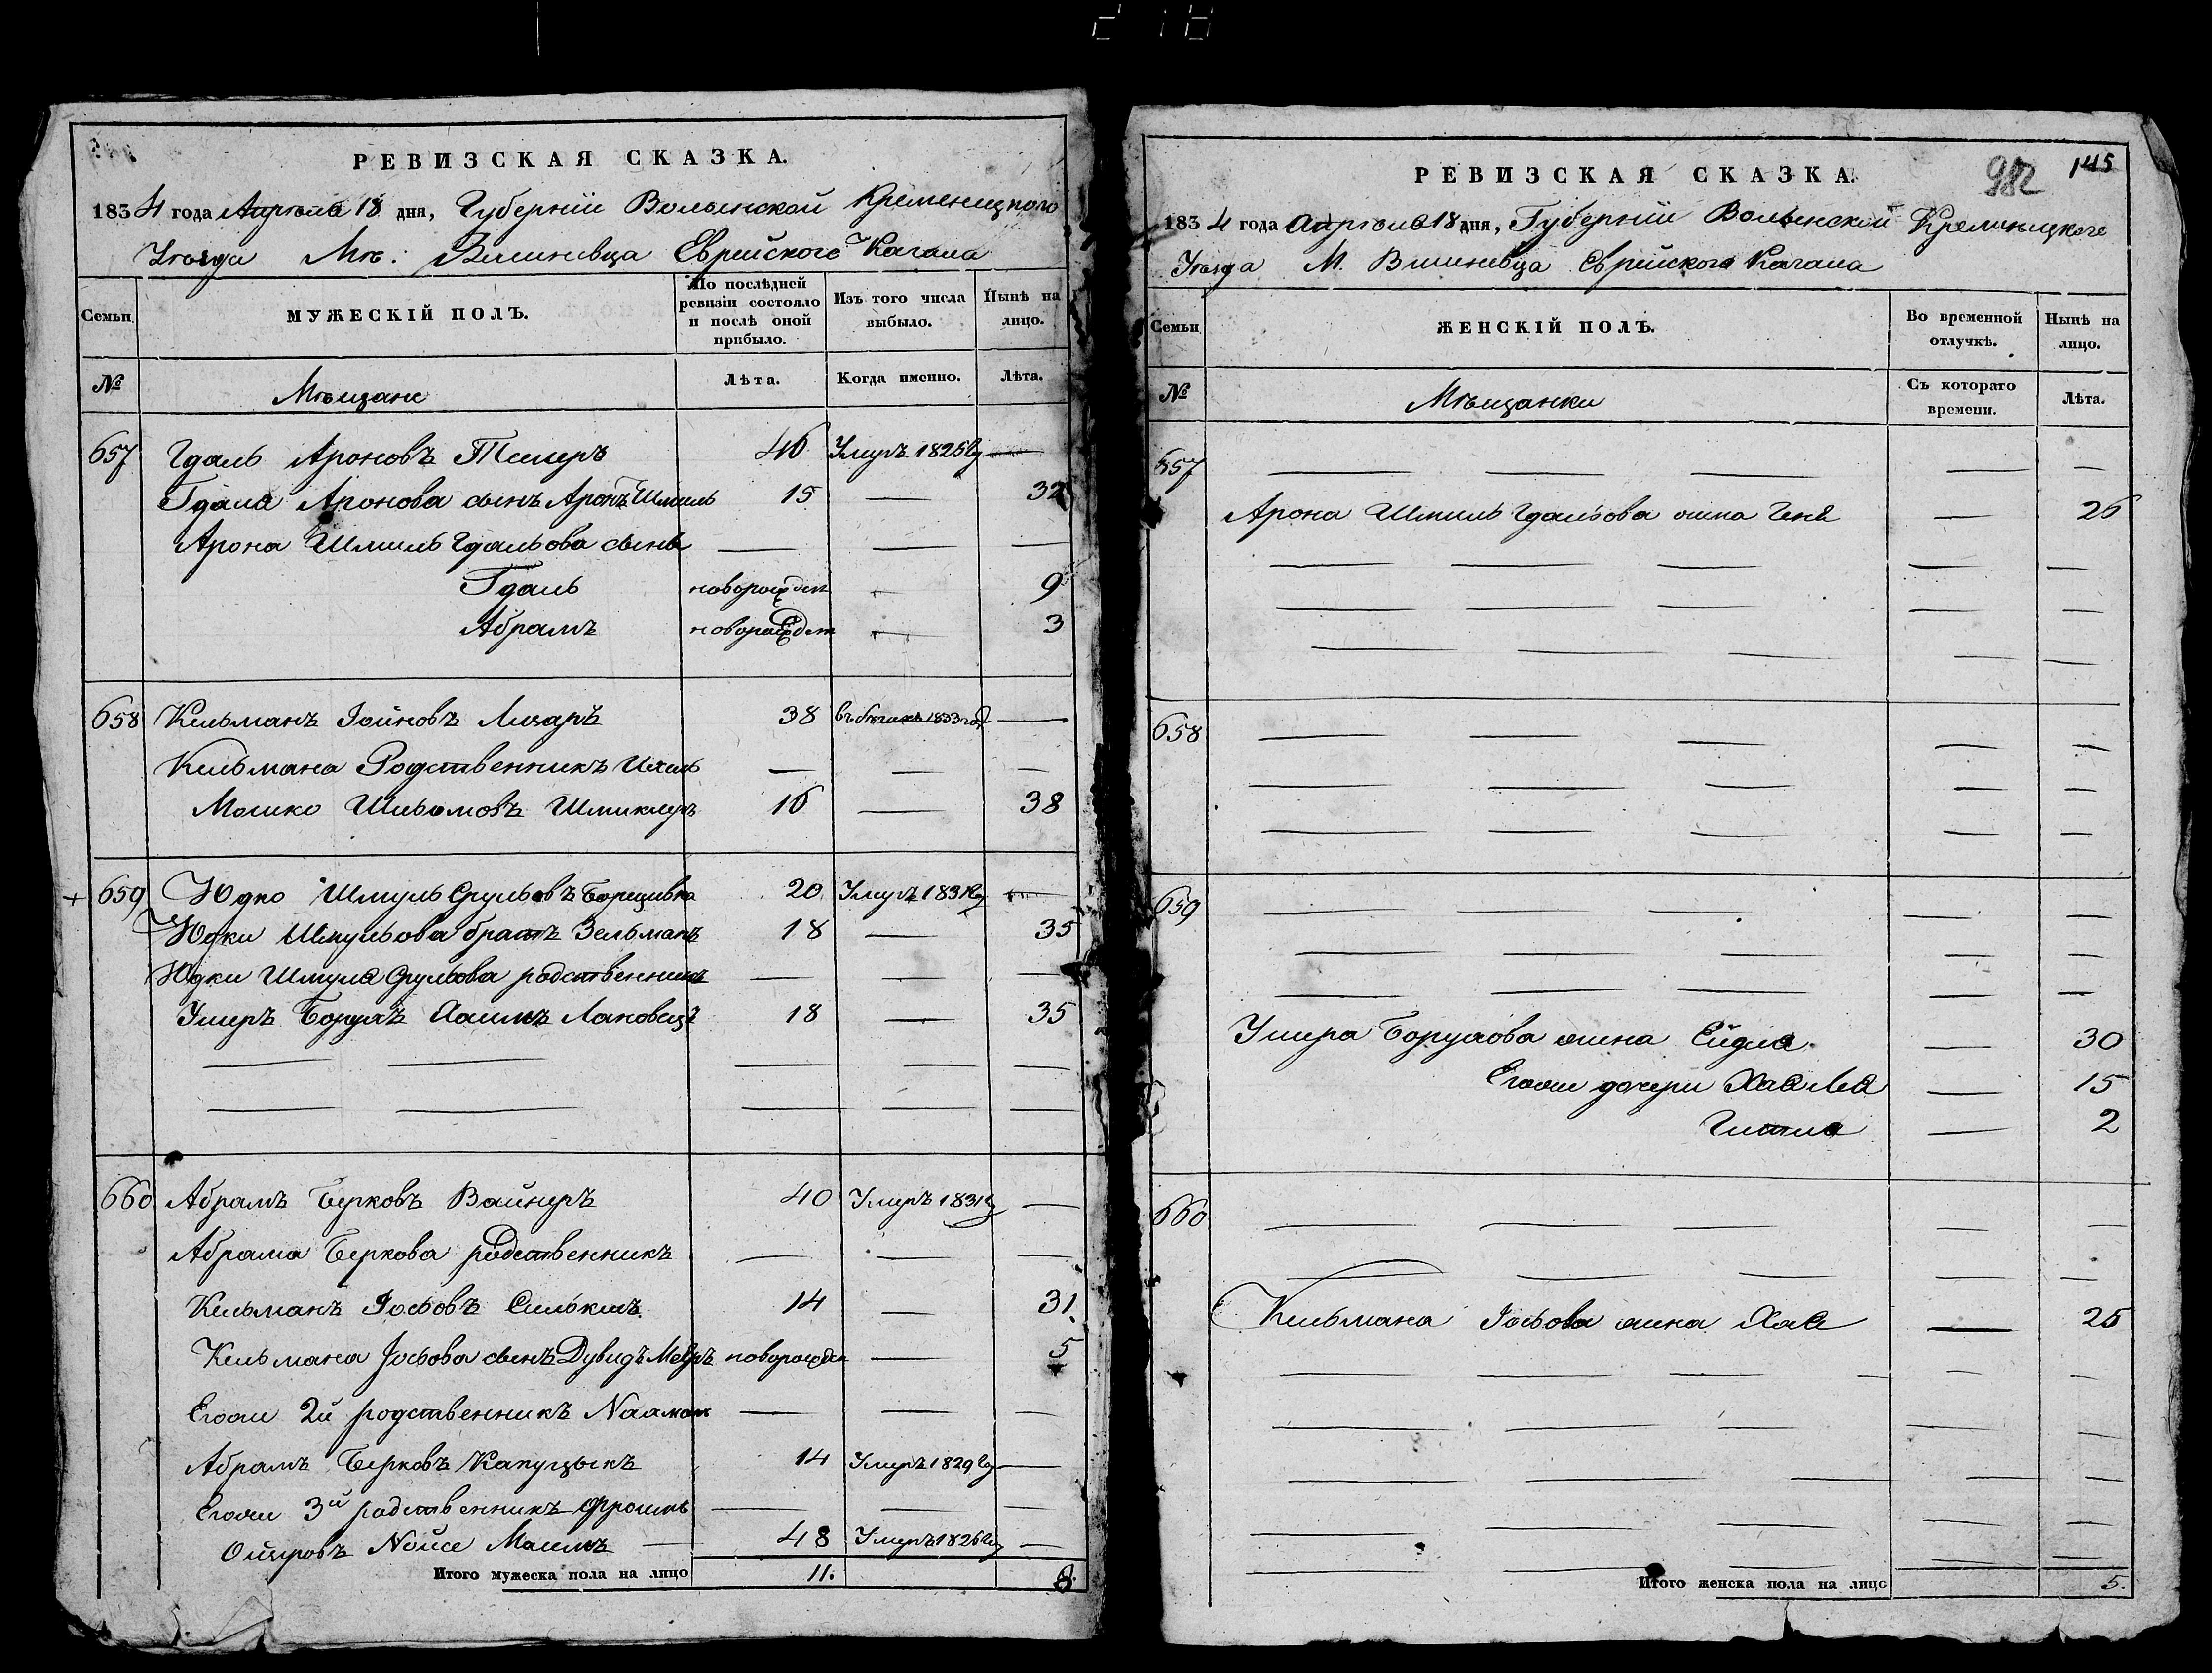 РЕВИЗСКАЯ СКАЗКА.
1834 года Апреля 18 дня, Губернии Волынской Кременецкого
Уезда Мѣ: Вишневца Еврейского Кагала
Семьи
МУЖЕСКІЙ ПОЛЪ.
По послѣдней ревизіи состояло и послѣ оной прибыло.
Изъ того числа выбыло.
Нынѣ на лицо.
№
Мѣщане
Лѣта.
Когда именно.
Лѣта.
657 Гдаль Ароновъ 46 Умеръ 1825 —
Гдаля Аронова сынъ Аронъ Шмиль 15 — 32
Арона Шмиль Гдальова сыны — — —
Гдаль новорожден — 9
Абрамъ новорожден — 3
658 Кельманъ 38 въ бегахъ 1833 год —
Кельмана Родственникъ — — —
Мошко 16 — 38
659 Юдко Шмуль Срульовъ 20 Умеръ 1831 —
Юдки Шмульова братъ Зельманъ 18 — 35
Юдки Шмуля Срульова родственникъ — — —
Ушеръ Борухъ 18 — 35
660 Абрамъ Берковъ Вайнеръ 40 Умеръ 1831 —
Абрама Беркова родственникъ — — —
Кельманъ Іосьовъ 14 — 31
Кельмана Іосьова сынъ Дувидъ новорожден — 5
Егоже 2й родственникъ — — —
Абрамъ Берковъ 14 Умеръ 1829 —
Егоже 3й родственникъ — — —
48 Умеръ 1826 —
Итого мужеска пола на лицо 11. 8.
982 145
РЕВИЗСКАЯ СКАЗКА.
1834 года Апреля 18 дня, Губернии Волынской Кременецкого
Уезда М. Вишневца Еврейского Кагала
Семьи
ЖЕНСКІЙ ПОЛЪ.
Во временной отлучкѣ.
Нынѣ на лицо.
№
Мѣщанки
Съ котораго времени.
Лѣта.
657 — — — — —
Арона Шмиль Гдальова жена Геня — 26
658 — — — — —
659 — — — — —
Ушера Борухова жена Ейдля — 30
Егоже дочери Хая Леа — 15
Гитля — 2
660 — — — — —
Кельмана Іосьова жена Хая — 25
Итого женска пола на лицо 5.